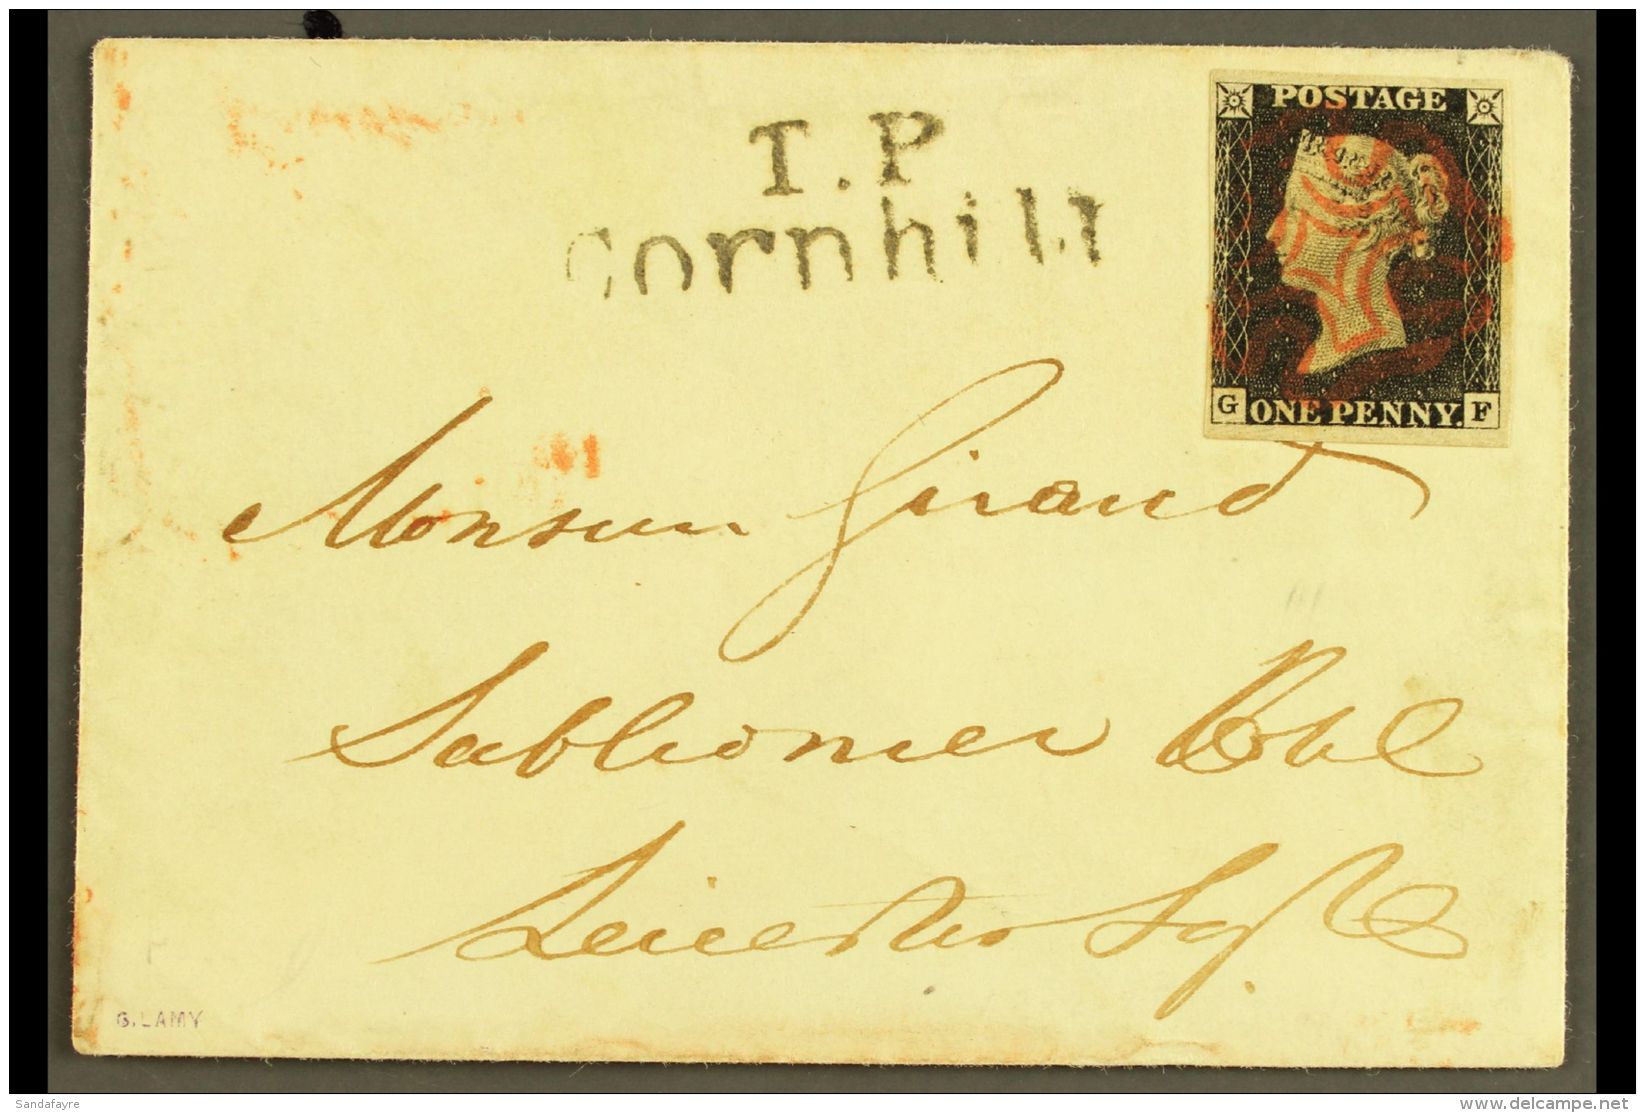 T.P
Cornhill
POSTAGE
G ONE PENNY. F
Monsieur Giraud
Sablonier
Leicester Sqre
G. LAMY
Sandafayre
delcampe.net